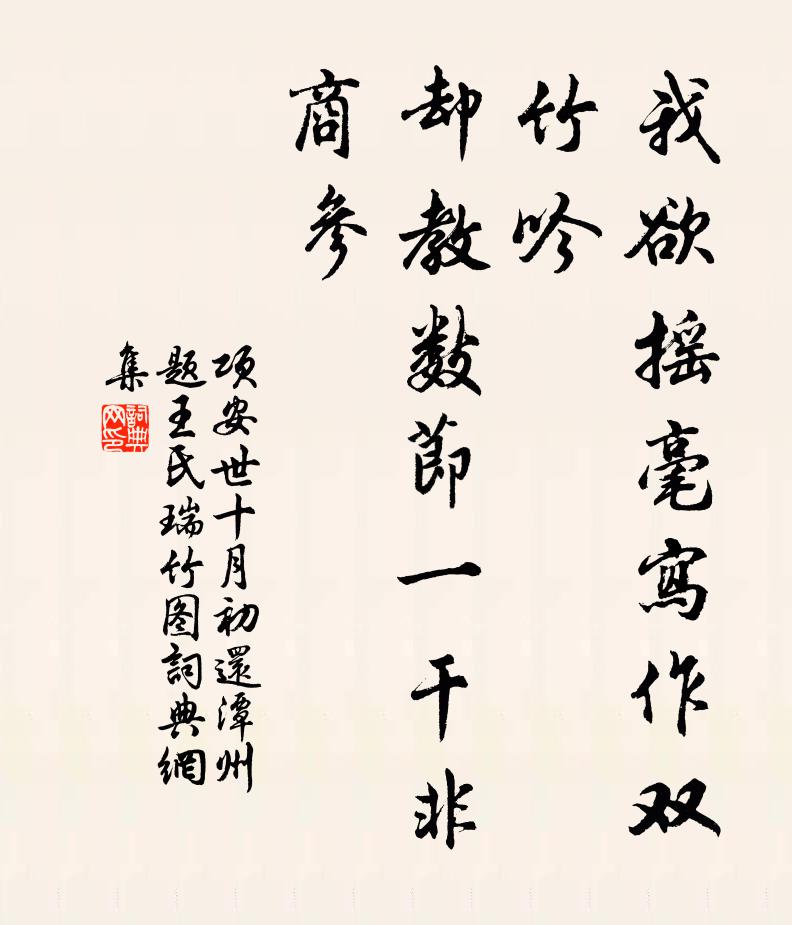 我欲摇毫寫作双
竹吟
却教数節一干非
商參
项安世十月初還潭州
题王氏瑞竹图詞典網
集
詞典
网印